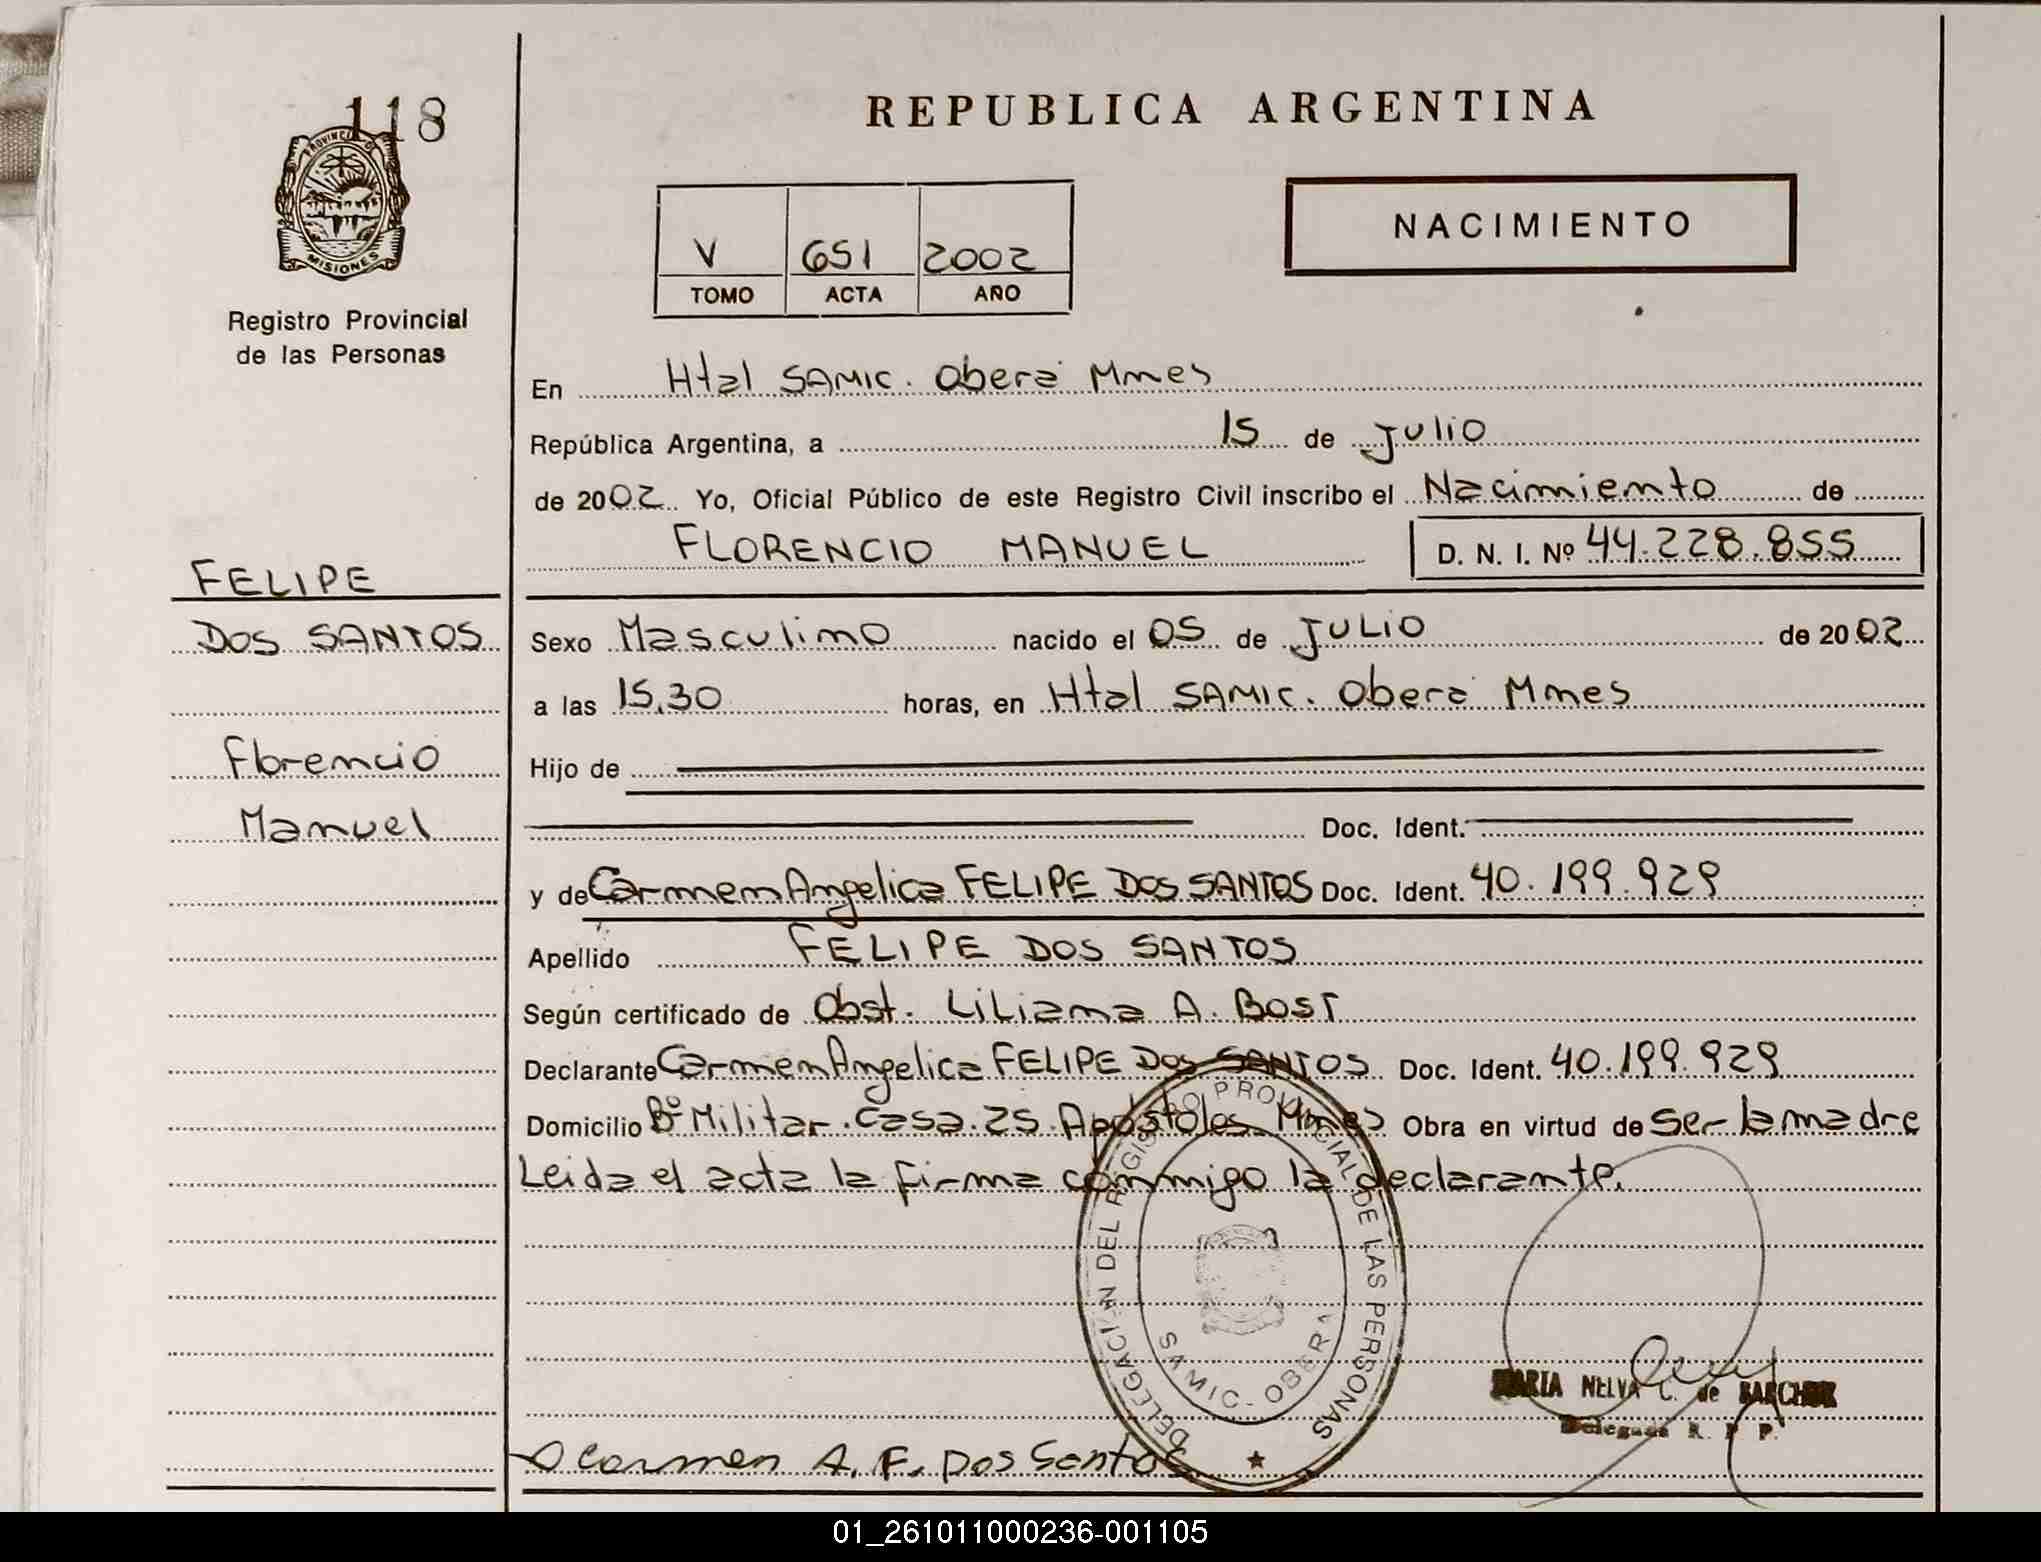 118
PROVINCIA DE
MISIONES
Registro Provincial
de las Personas
REPUBLICA ARGENTINA
V 651 2002
TOMO ACTA AÑO
NACIMIENTO
En Htal SAMIC. Oberá Mnes
República Argentina, a 15 de Julio
de 2002 Yo, Oficial Público de este Registro Civil inscribo el Nacimiento de
FLORENCIO MANUEL D. N. I. Nº 44.228.855
FELIPE
DOS SANTOS
Florencio
Manuel
Sexo Masculino nacido el 05 de JULIO de 2002
a las 15.30 horas, en Htal SAMIC. Oberá Mnes
Hijo de
Doc. Ident.
y de Carmen Angelica FELIPE DOS SANTOS Doc. Ident. 40.199.929
Apellido FELIPE DOS SANTOS
Según certificado de Obst. Liliana A. BOST
Declarante Carmen Angelica FELIPE DOS SANTOS Doc. Ident. 40.199.929
Domicilio Bº Militar. Casa. 25. Apóstoles. Mnes Obra en virtud de ser la madre
Leida el acta la firma conmigo la declarante.
DELEGACION DEL REGISTRO PROVINCIAL DE LAS PERSONAS
SAMIC. OBERA
MARIA NELVA C. de
Delegada R. P. P.
Carmen A. F. Dos Santos
01_261011000236-001105